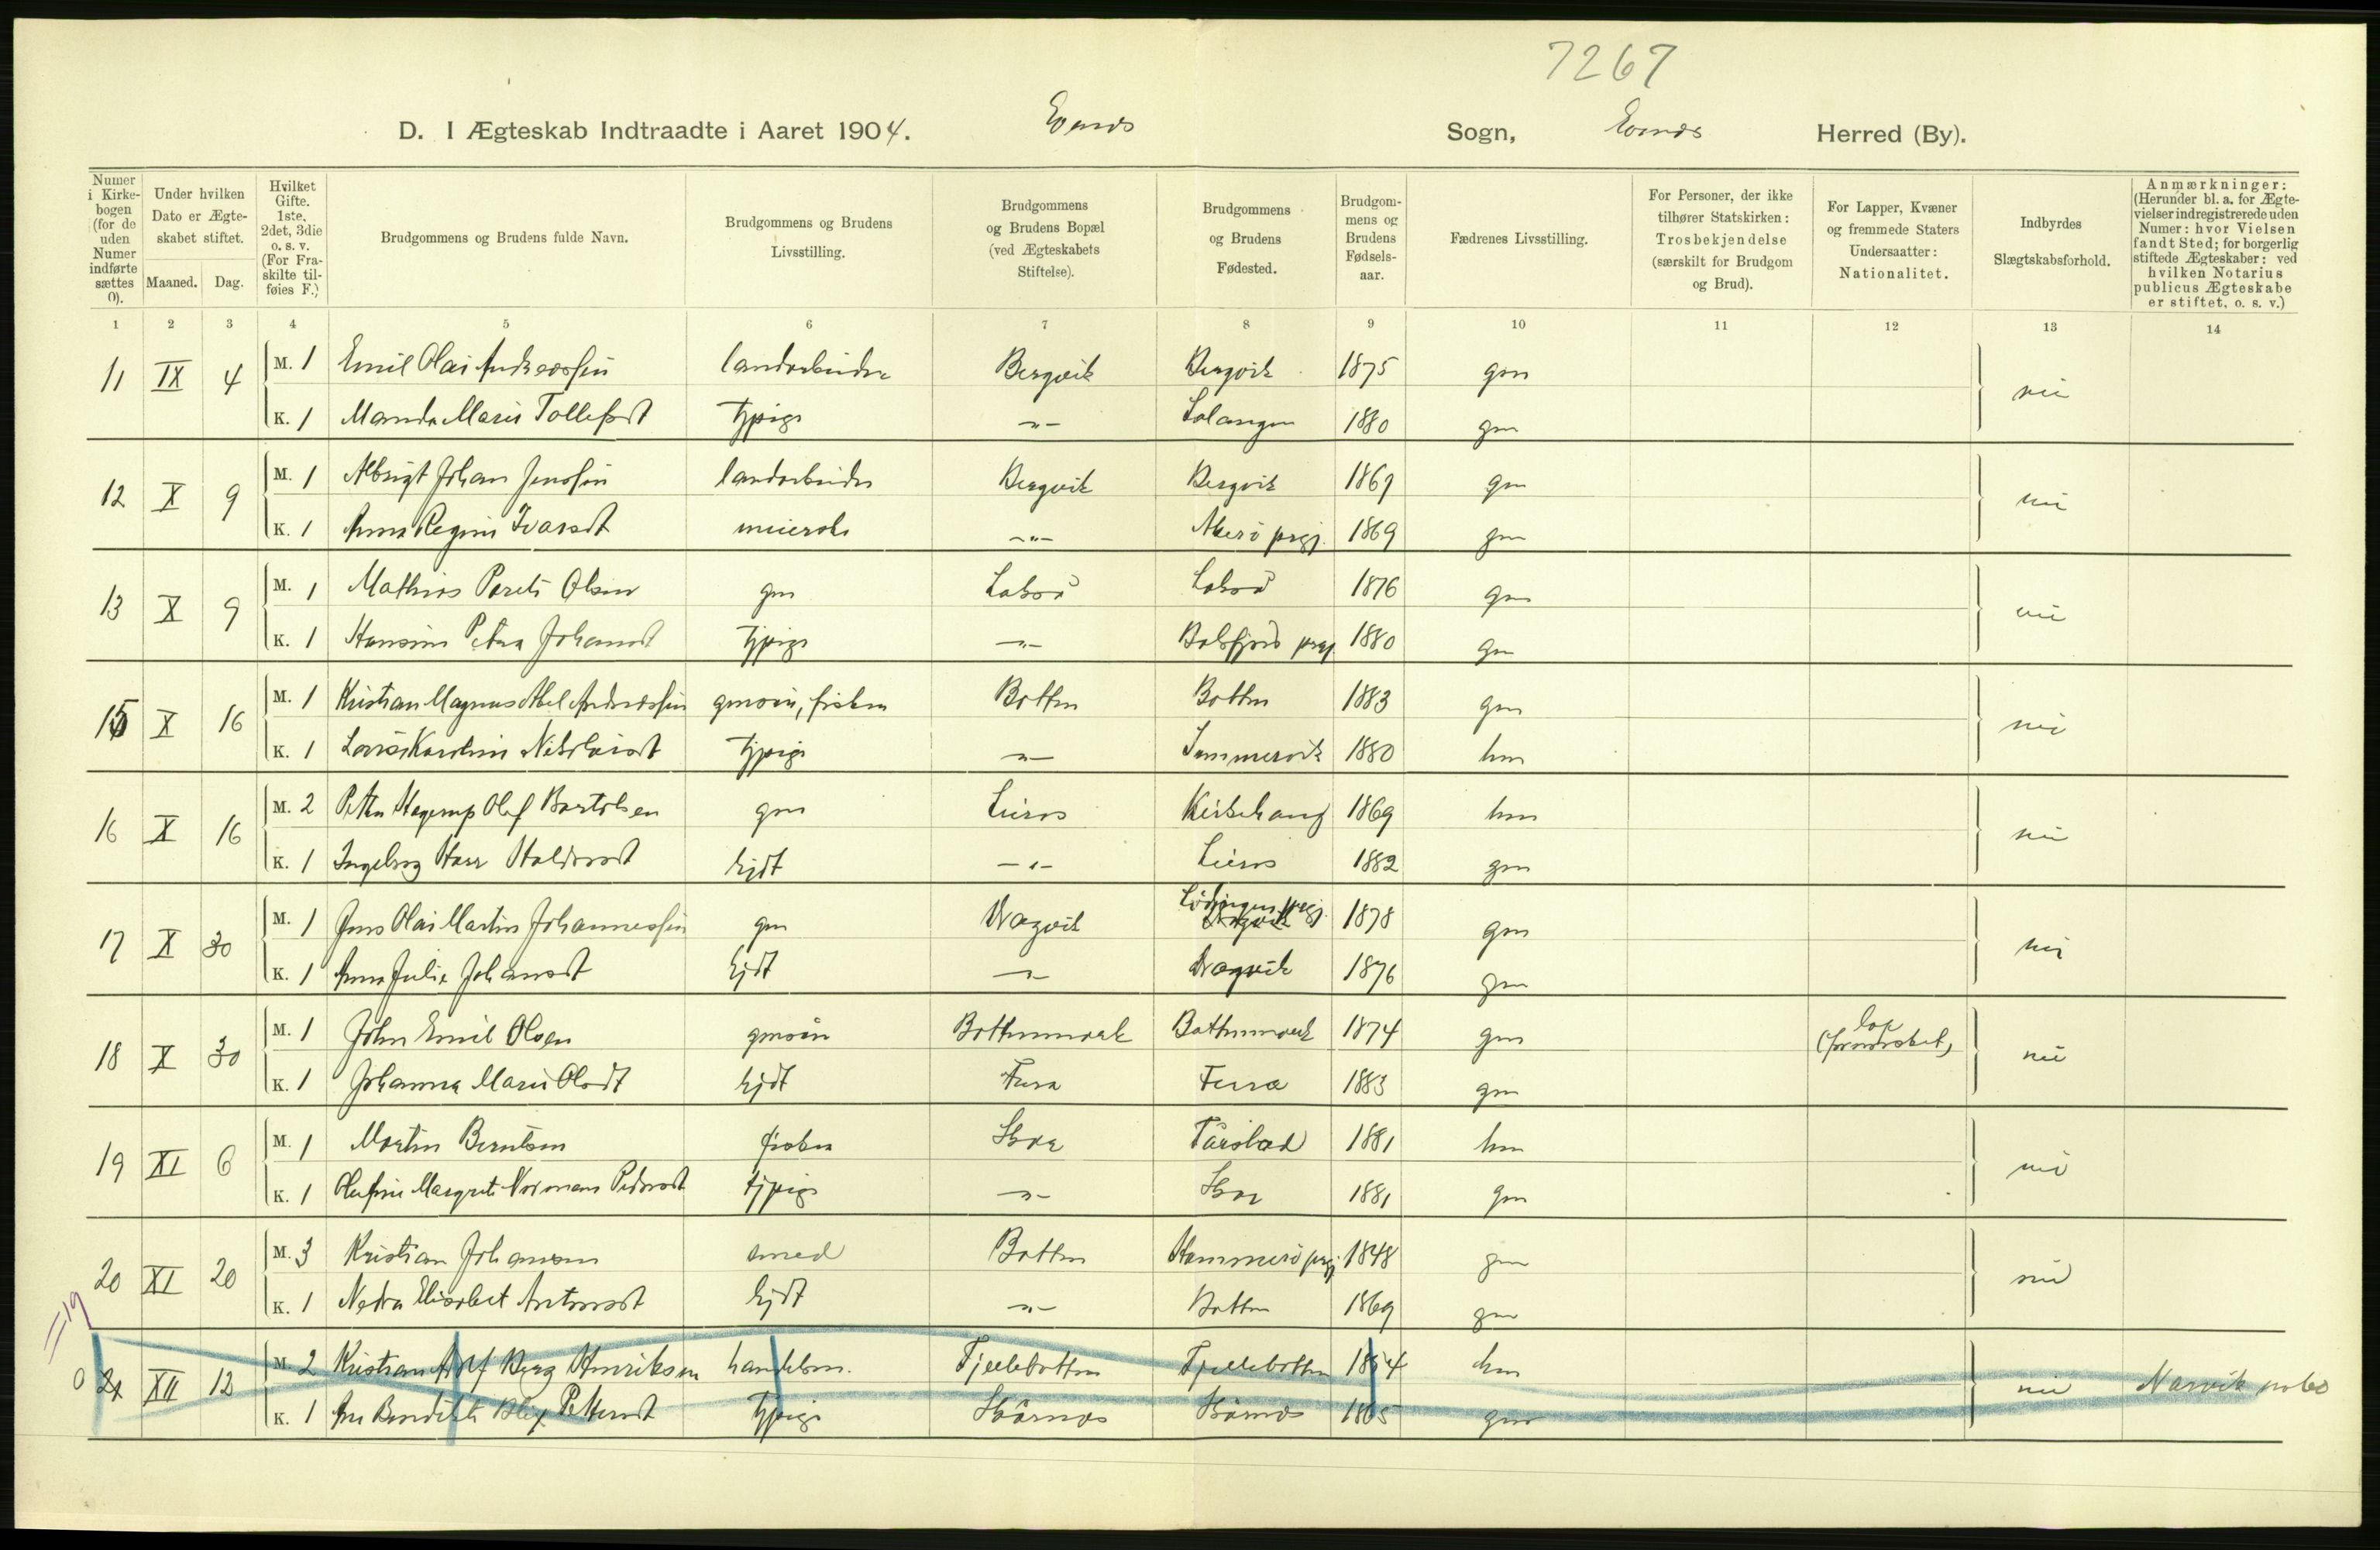 7267
D. I Ægteskab Indtraadte i Aaret 1904. Evenes Sogn, Evenes Herred (By).
Numer i Kirkebogen (for de uden Numer indførte sættes 0).
Under hvilken Dato er Ægteskabet stiftet.
Maaned. Dag.
Hvilket Gifte. 1ste, 2det, 3die o. s. v. (For Fraskilte tilføies F.)
Brudgommens og Brudens fulde Navn.
Brudgommens og Brudens Livsstilling.
Brudgommens og Brudens Bopæl (ved Ægteskabets Stiftelse).
Brudgommens og Brudens Fødested.
Brudgommens og Brudens Fødselsaar.
Fædrenes Livsstilling.
For Personer, der ikke tilhører Statskirken: Trosbekjendelse (særskilt for Brudgom og Brud).
For Lapper, Kvæner og fremmede Staters Undersaatter: Nationalitet.
Indbyrdes Slægtskabsforhold.
Anmærkninger: (Herunder bl. a. for Ægtevielser indregistrerede uden Numer: hvor Vielsen fandt Sted; for borgerlig stiftede Ægteskaber: ved hvilken Notarius publicus Ægteskabe er stiftet, o. s. v.)
1 2 3 4 5 6 7 8 9 10 11 12 13 14
11 IX 4 M. 1 Emil Olai Andreassen landarbeider Bergvik Bergvik 1875 gm
K. 1 Manda Marie Tollefsdt tjpige -"- 1880 gm
12 X 9 M. 1 Albrigt Johan Jenssen landarbeider Bergvik Bergvik 1869 gm
K. 1 Anna Regine Ivarsdt meierske -"- prgj. 1869 gm
13 X 9 M. 1 Mathias Olsen gm 1876 gm
K. 1 Hansine Petra Johansdt tjpige -"- Balsfjord prgj. 1880 gm
15 X 16 M. 1 Kristian Magnus Abel Andreassen gmsøn, fisker Botten Botten 1883 gm
K. 1 Karoline Nikolaisdt tjpige -"- Sommervik 1880 hm
16 X 16 M. 2 Peter Hagerup Olaf Bertelsen gm Liiros Kirkehaug 1869 hm
K. 1 Ingeborg hjdt -"- Liiros 1882 gm
17 X 30 M. 1 Jens Olai Martin Johannessen gm Dragvik Lødingen prgj. 1878 gm
K. 1 Anna Julie Johansdt hjdt -"- Dragvik 1876 gm
18 X 30 M. 1 John Emil Olsen gmsøn Bottenmark Bottenmark 1874 gm lap
K. 1 Johanna Marie Olsdt hjdt Fura Fura 1883 gm
19 XI 6 M. 1 Martin Berntsen fisker Tårstad 1881 hm
K. 1 Margrete Normann Pedersdt tjpige -"- 1881 gm
20 XI 20 M. 3 Kristian Johansen smed Botten Hammerø prgj. 1848 gm
K. 1 Elisabet hjdt -"- Botten 1869 gm
=19
0 21 XII 12 M. 2 Kristian Adolf Berg Henriksen handelsm. Fjeldbotten Fjeldbotten 1854 hm Narvik
K. 1 Blix Pettersdt tjpige 1865 gm